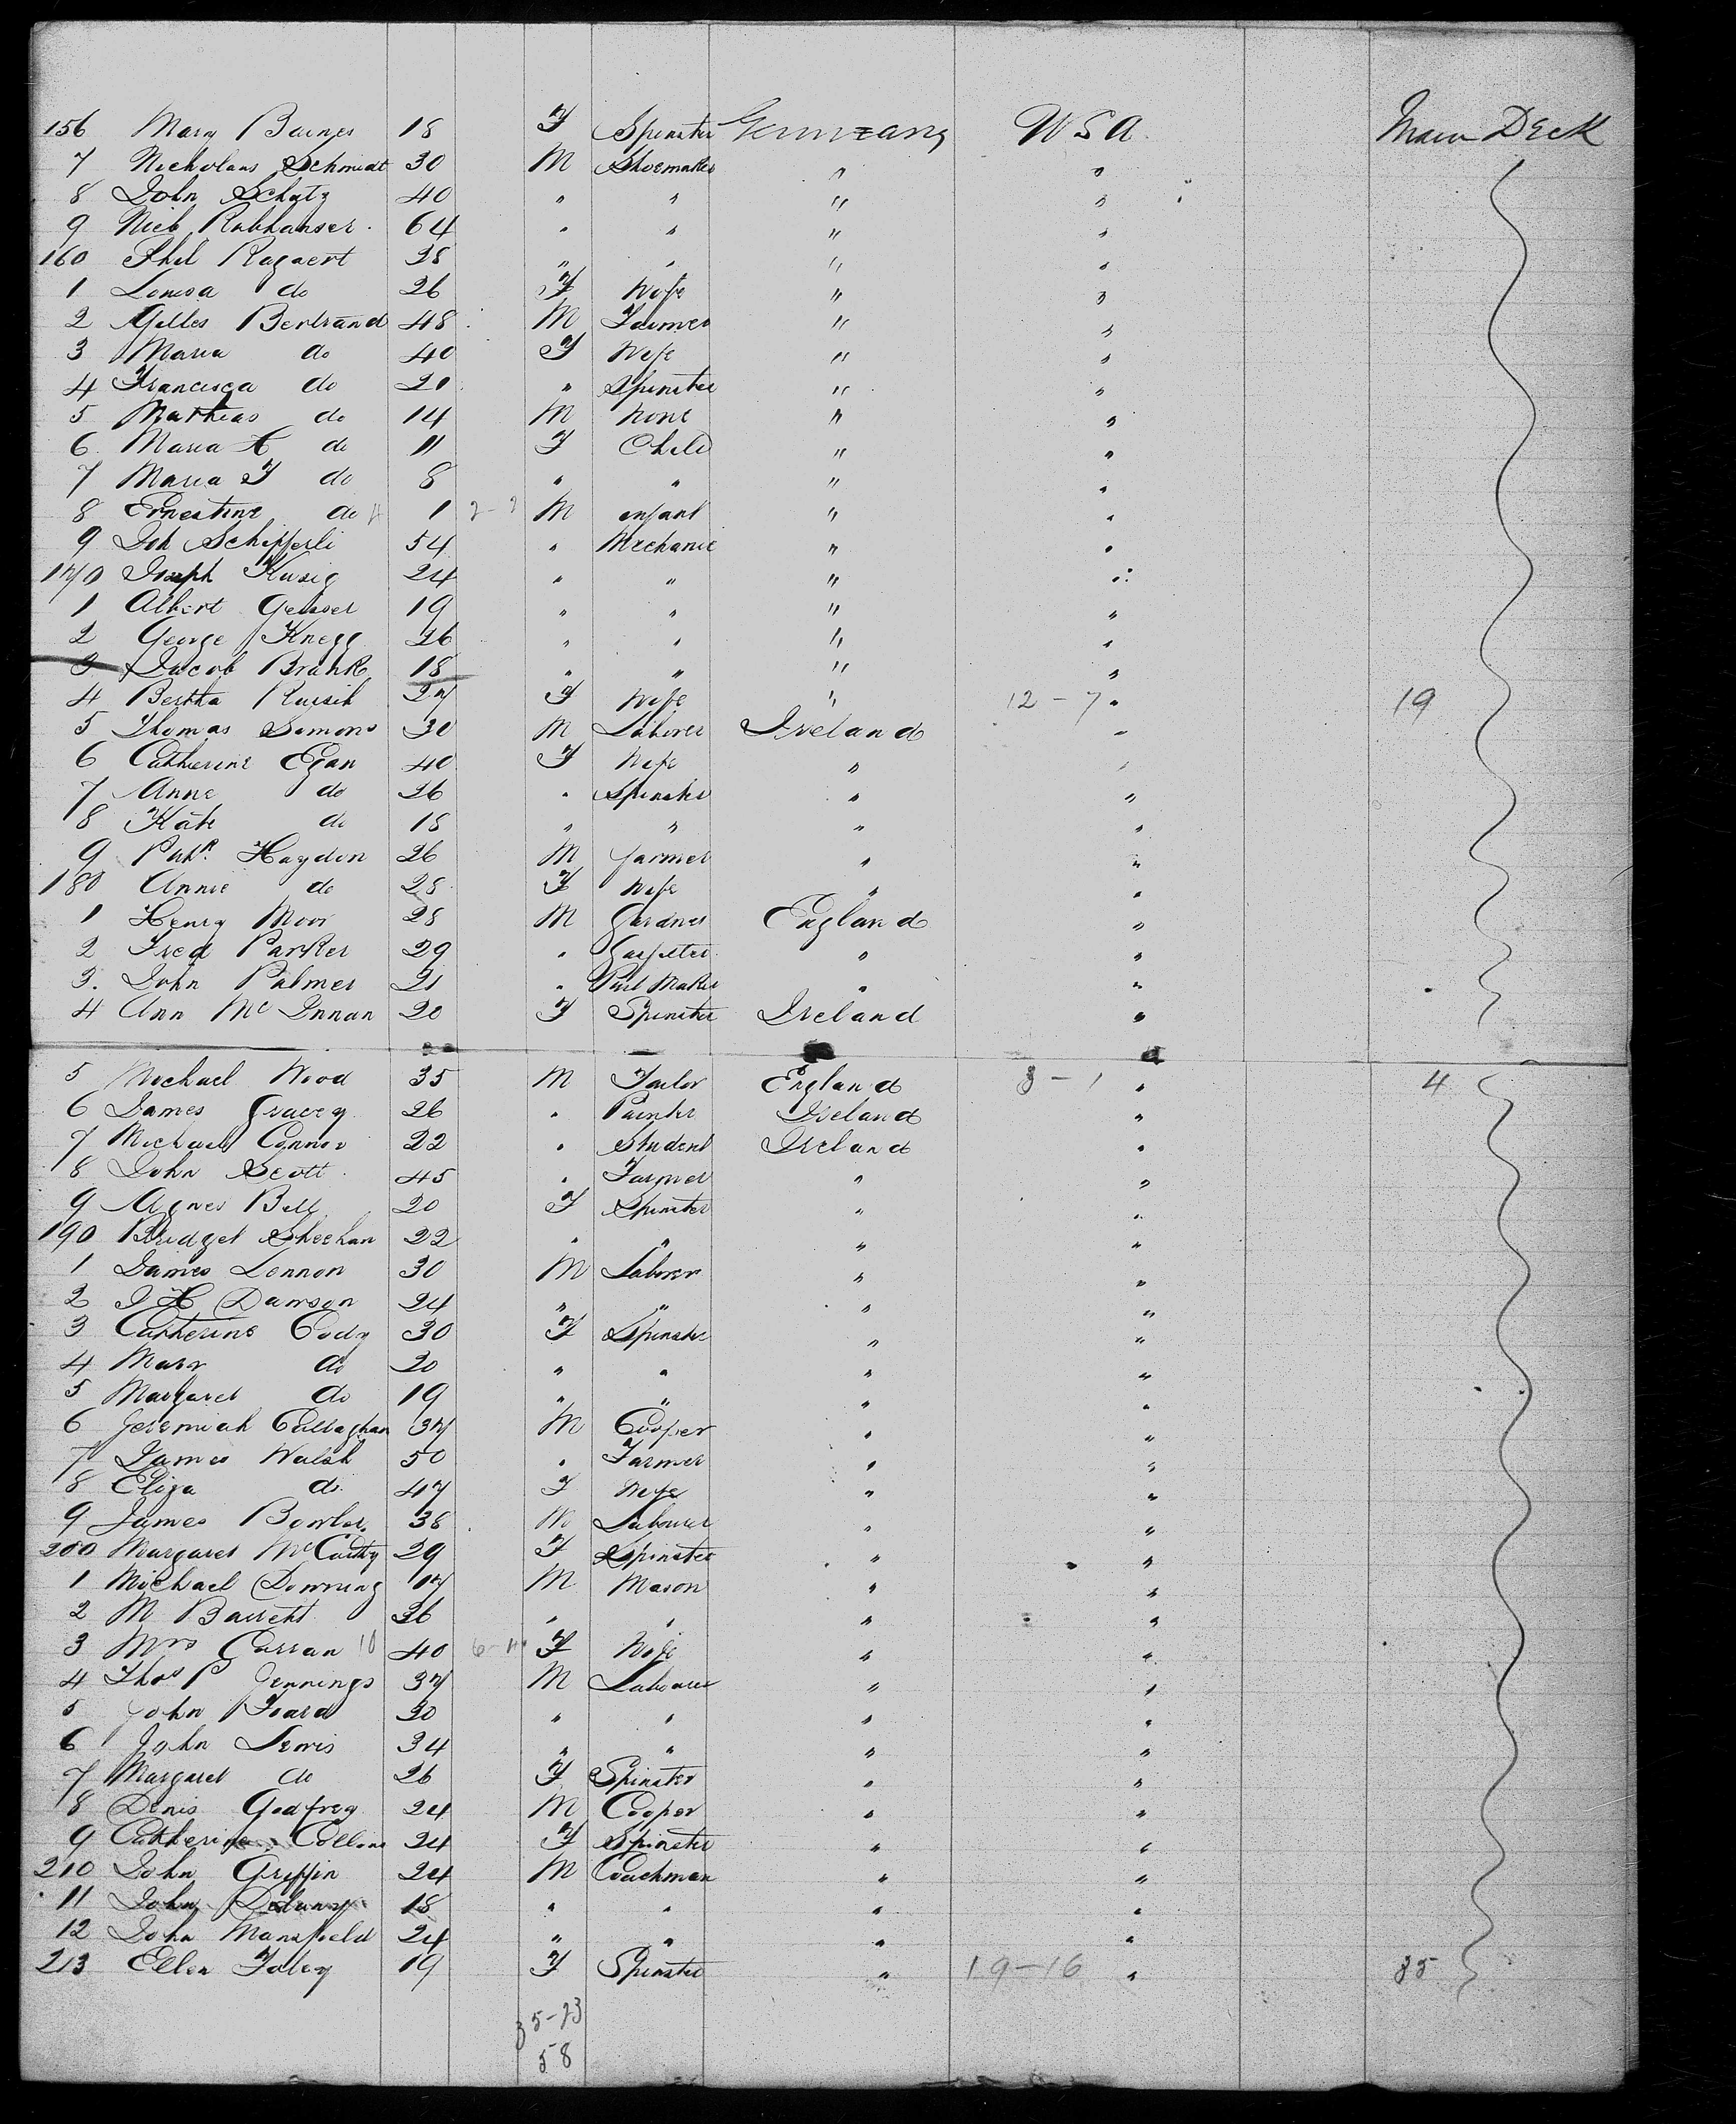 156 Mary Baines 18 F Spinster Germany USA Main Deck
7 Nicholaus Schmidt 30 M Shoemaker " "
8 John Schatz 40 " " " "
9 Nich 64 " " " "
160 Phil Rogaert 38 " " " "
1 Louisa do 26 F Wife " "
2 Gilles Bertrand 48 M Farmer " "
3 Maria do 40 F Wife " "
4 Francisca do 20 " Spinster " "
5 Mathias do 14 M None " "
6 Maria C do 11 F Child " "
7 Maria F do 8 " " " "
8 Ernestine do 1 M infant " "
9 Joh Schipperli 54 " Mechanic " "
170 Joseph Kusig 24 " " " "
1 Albert Geisser 19 " " " "
2 George Knegg 26 " " " "
3 Jacob Brank 18 " " " "
4 Bertha 27 F Wife " 12-7 " 19
5 Thomas Simons 30 M Laborer Ireland "
6 Catherine Egan 40 F Wife " "
7 Anne do 26 " Spinster " "
8 Kate do 18 " " " "
9 Patk Haydon 26 M farmer " "
180 Annie do 28 F Wife " "
1 Henry Moor 28 M Gardner England "
2 Fred Parker 29 " Carpenter " "
3. John Palmer 21 " Maker " "
4 Ann Mc Innan 20 F Spinster Ireland "
5 Michael Wood 35 M Tailor England 3-1 " 4
6 James Gracey 26 " Painter Ireland "
7 Michael Connor 22 " Student Ireland "
8 John Scott 45 " Farmer " "
9 Agnes Bell 20 F Spinster " "
190 Bridget Sheehan 22 " " " "
1 James Lennon 30 M Laborer " "
2 J H Dawson 24 " " " "
3 Catherine Cody 30 F Spinster " "
4 Mary do 20 " " " "
5 Margaret do 19 " " " "
6 Jeremiah Callaghan 37 M Cooper " "
7 James Walsh 50 " Farmer " "
8 Eliza do 47 F Wife " "
9 James Bowler 38 M Labourer " "
200 Margaret McCarthy 29 F Spinster " "
1 Michael Downing 17 M Mason " "
2 M Barrett 26 " " " "
3 Mrs Curran 10 40 6-4 F Wife " "
4 Thos P Jennings 37 M Labourer " "
5 John Foard 30 " " " "
6 John Lewis 34 " " " "
7 Margaret do 26 F Spinster " "
8 Denis Godfrey 24 M Cooper " "
9 Catherine Collins 24 F Spinster " "
210 John Griffin 24 M Coachman " "
11 John Delaney 18 " " " "
12 John Mansfield 24 " " " "
213 Ellen Foley 19 F Spinster " 19-16 " 35
35-23
58